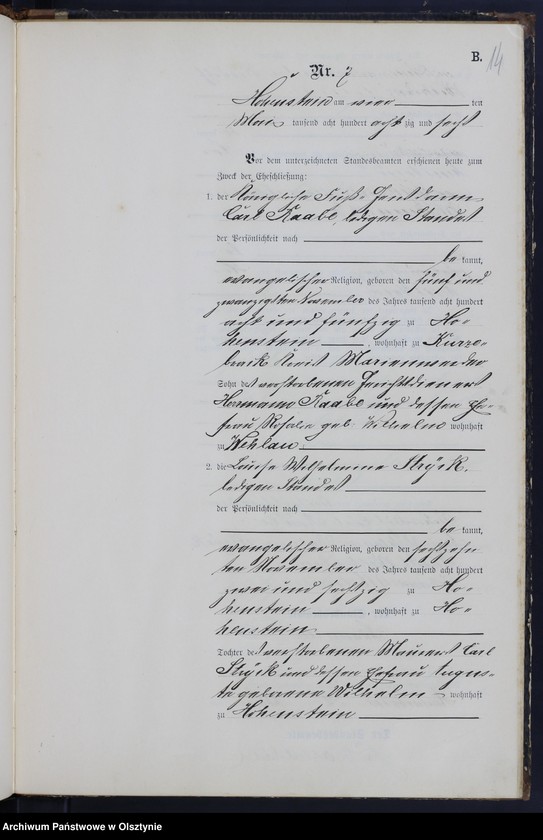 B.
14
Nr. 7
Hohenstein am vier ten
Mai tausend acht hundert acht zig und sechs
Vor dem unterzeichneten Standesbeamten erschienen heute zum
Zweck der Eheschließung:
1. der Königliche Fuß-Gendarm
Carl Raabe, ledigen Standes
der Persönlichkeit nach
be kannt,
evangelischer Religion, geboren den fünf und
zwanzigsten November des Jahres tausend acht hundert
acht und fünfzig zu Ho-
henstein, wohnhaft zu Kurze-
brack Kreis Marienwerder
Sohn des verstorbenen Gerichtsdieners
Hermann Raabe und dessen Ehe-
frau Rosalie geb. Wilhelm wohnhaft
zu Wehlau
2. die Louise Wilhelmine Stryck,
ledigen Standes
der Persönlichkeit nach
be kannt,
evangelischer Religion, geboren den sechszehn
ten November des Jahres tausend acht hundert
zwei und sechszig zu Ho-
henstein, wohnhaft zu Ho-
henstein
Tochter des verstorbenen Maurers Carl
Stryck und dessen Ehefrau Augus-
te geborene Wilhelm wohnhaft
zu Hohenstein
Archiwum Państwowe w Olsztynie